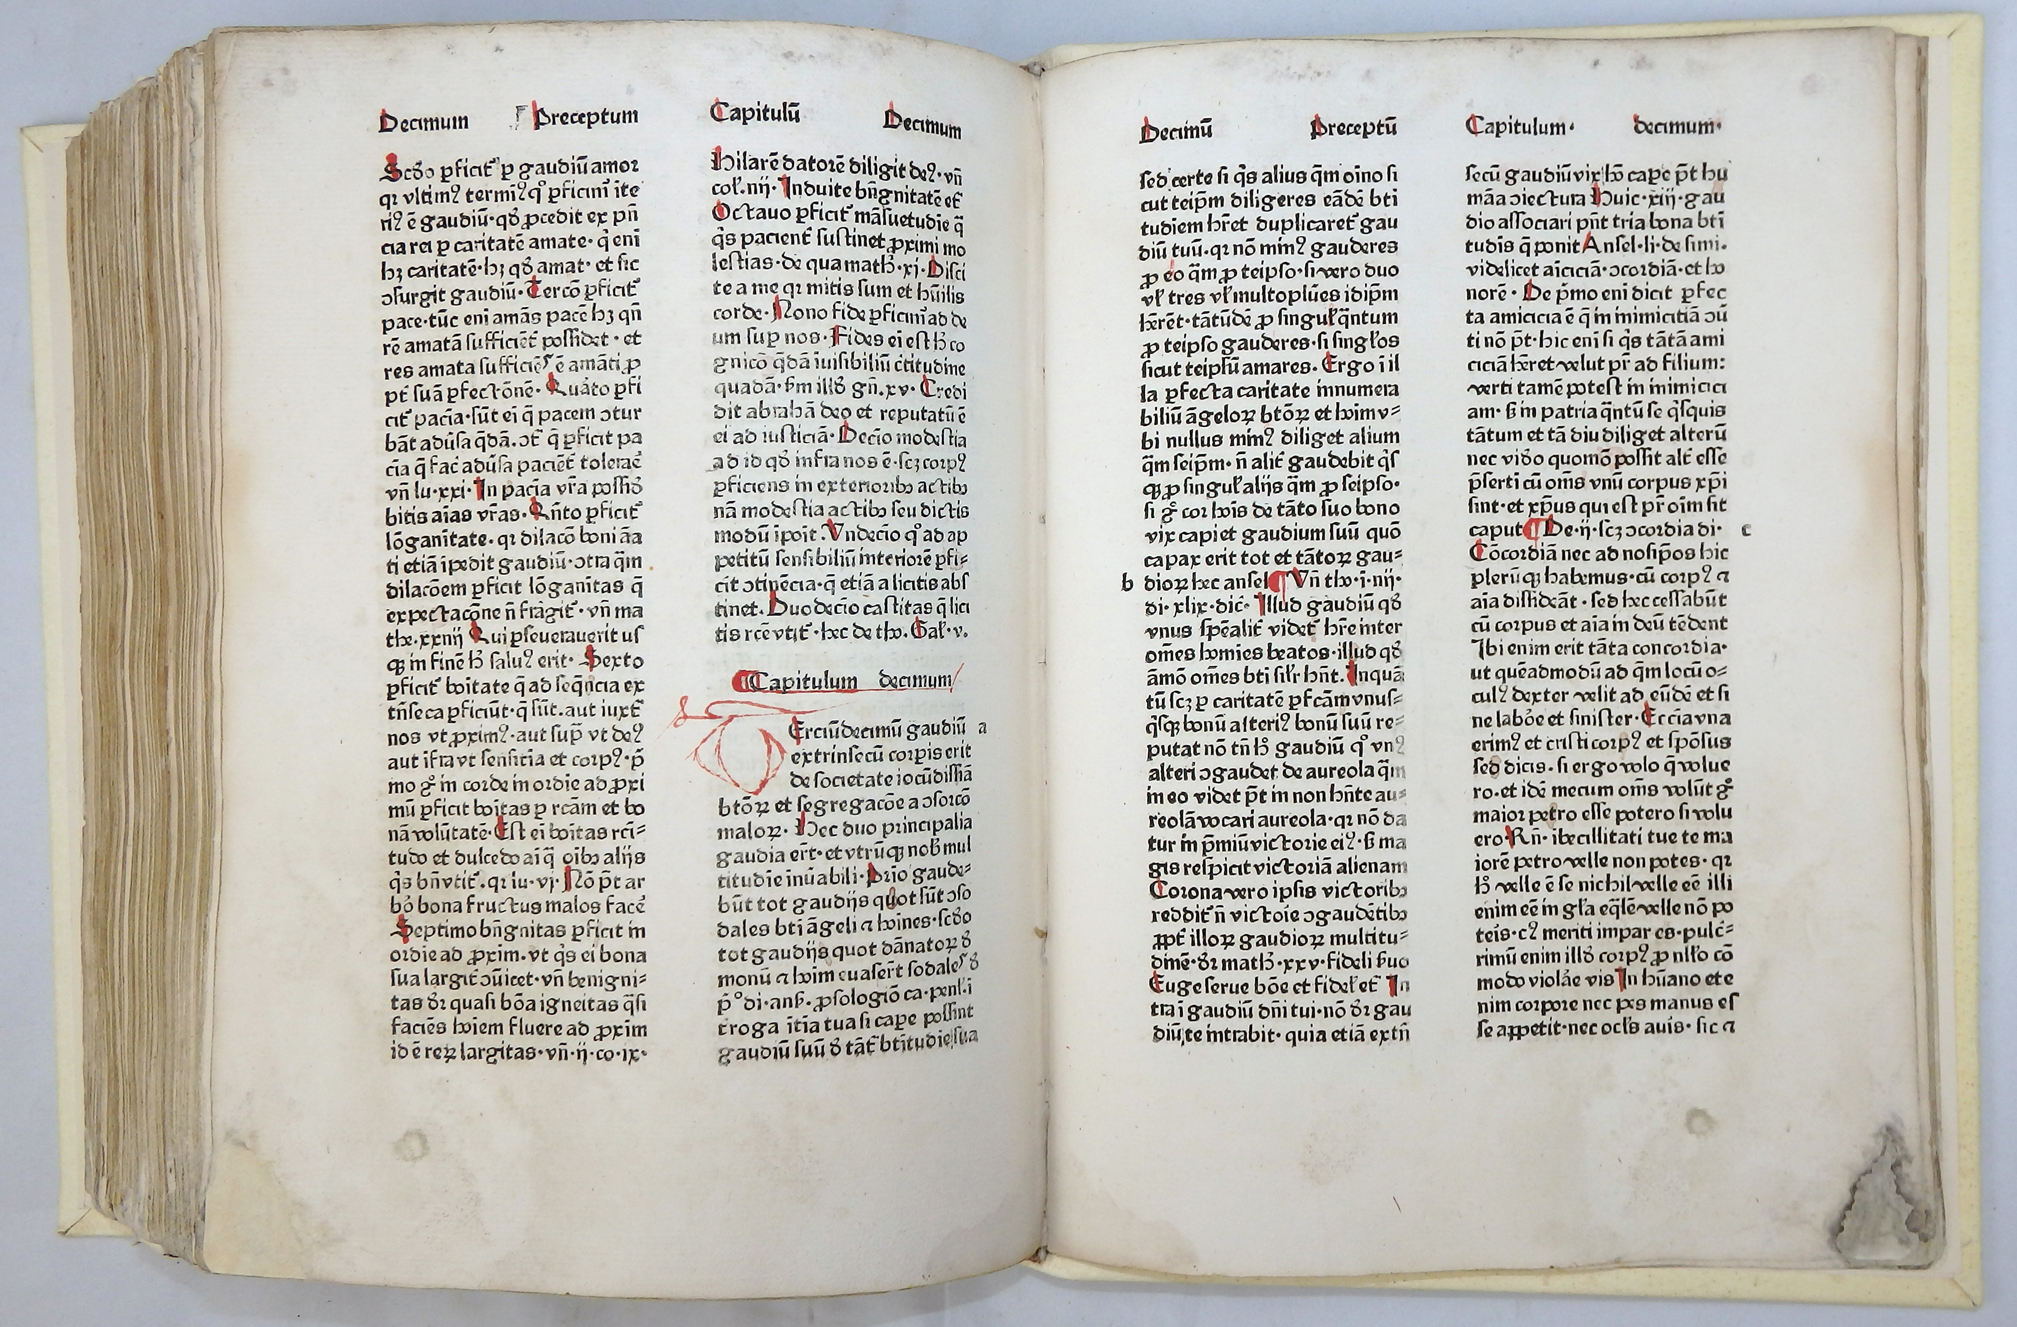 Decimum Preceptum
Scd́o ꝑficit᷑ ꝑ gaudiū amor
qꝛ vltimꝰ termiꝰ qͦ ꝑficim᷑ īte
riꝰ ē gaudiū· qd́ ꝓcedit ex pn̄
cia rei ꝑ caritatē amate· q̄ eni
hꝫ caritatē· hꝫ qd́ amat· et sic
ↄsurgit gaudiū· Tercō ꝑficit᷑
pace· tūc eni amās pacē hꝫ qn̄
rē amatā sufficiēt᷑ possidet· et
res amata sufficiēs ē amāti ꝓ
pt᷑ suā ꝑfectōnē· Quāto ꝑfi
cit᷑ paciā· sūt ei q̄ pacem ↄtur
bāt adūsa q̄dā. ↄt᷑ q̄ ꝑficit pa
cīa q̄ fac̄ adūsa paciēt᷑ tolerac̄
vn̄ lu·xxi· In pacīa vr̄a possid́
bitis aīas vr̄as· Qn̄to ꝑficit᷑
lōganitate· qꝛ dilacō boni āa
ti etiā īpedit gaudiū· ↄtra q̄m
dilacōem ꝑficit lōganitas q̄
expectacōne n̄ frāgit᷑· vn̄ ma
th̄·xxiiij Qui ꝑseuerauerit us
qꝫ in finē h̄ saluꝰ erit· Sexto
ꝑficit᷑ boitate q̄ ad seq̄ncia ex
tn̄seca ꝑficiūt· q̄ sūt· aut iuxt᷑
nos vt ꝓximꝰ· aut sup̄ vt deꝰ
aut īfra vt sensitia et corpꝰ· p̄
mo gͦ in corde in ordīe ad ꝓxi
mū ꝑficit boītas ꝑ rcām et bo
nā volūtatē· Est ei boītas rci᷑⸗
tudo et dulcedo aīq̄ oibꝫ alijs
q̄s bn̄ vtit᷑· qꝛ lu·vj· Nō pt̄ ar
bo᷑ bona fructus malos facē
Septimo bn̄gnitas ꝑficit in
ordie ad ꝓxim· vt q̄s ei bona
sua largit᷑ ↄuīcet· vn̄ benigni⸗
tas dr̄ quasi bōa igneitas q̄si
faciēs hoiem fluere ad ꝓxim
id ē reꝝ largitas· vn̄·ij·co·ix·
Capitulū Decimum
Hilarē datorē diligit deꝰ· vn̄
col̄·iiij· Induite bn̄gnitatē et᷑
Octauo ꝑficit᷑ māsuetudie q̄
q̄s pacient᷑ sustinet ꝓximi mo
lestias· de qua math̄·xj· Disci
te a me qꝛ mitis sum et hūilis
corde· Nono fide ꝑficim᷑ ad de
um sup̄ nos· Fides ei est h̄ co
gnicō q̄dā īuisibiliū c̄titudine
quadā· ẜm illd́ gn̄·xv· Credi
dit abrahā deo et reputatū ē
ei ad iusticiā· Decīo modestia
ad id qd́ infra nos ē· scꝫ corpꝰ
ꝑficiens in exterioribꝫ actibꝫ
nā modestia actibꝫ seu dictis
modū īpoit· Vndecīo qͦ ad ap
petitū sensibiliū interiorē ꝑfi⸗
cit᷑ ↄtinēcia· q̄ etiā a licitis abs
tinet· Duodecīo castitas q̄ lici
tis rcē vtit᷑· hec de tho· Gal̄·v·
Capitulum decimum
Erciūdecimū gaudiū a
extrinsecū corꝑis erit
de societate iocūdissīā
btōꝝ et segregacōe a ↄsorcō
maloꝝ· Hec duo principalia
gaudia ert᷑· et vtrūqꝫ nob̄ mul
titudīe inūabili· Prīo gaude⸗
būt tot gaudijs quot sūt ↄso
dales bti āgeli ⁊ hoines· scd́o
tot gaudijs quot dānatoꝝ d́
monū ⁊ hoim euasert᷑ sodales d́
p̄ͦ di·anẜ· ꝓsologiō ca·penl̄·ī
troga īt̄ia tua si cape possint
gaudiū suū d́ tāt᷑ btitudie sua
Decimū Preceptū
sed certe si q̄s alius q̄m oīno si
cut teip̄m diligeres eādē bti
tudiem hr̄et duplicaret᷑ gau
diū tuū· qꝛ nō minꝰ gauderes
ꝓ eo q̄m ꝓ teipso· si vero duo
vl̄ tres vl̄ multo plūes idip̄m
hr̄ent· tātūdē ꝓ singul̄ q̄ntum
ꝓ teipso gauderes· si singl̄os
sicut teipsū amares· Ergo ī il
la ꝑfecta caritate innumera
biliū āgeloꝝ btōꝝ et hoim v⸗
bi nullus minꝰ diliget alium
q̄m seip̄m· n̄ alit᷑ gaudebit q̄s
qꝫ ꝓ singul̄ alijs q̄m ꝓ seipso·
si gͦ cor hoīs de tāto suo bono
vix capiet gaudium suū quō
capax erit tot et tātoꝝ gau⸗
b dioꝝ hec ansel Vn̄ tho·i·iiij·
di·xlix·dic̄· Illud gaudiū qd́
vnus spēalit᷑ videt᷑ hr̄e inter
om̄es homies beatos· illud qd́
āmō om̄es bti sil̄r hn̄t· Inquā
tū scꝫ ꝑ caritatē ꝑfcām vnus⸗
q̄sqꝫ bonū alteriꝰ bonū suū re⸗
putat nō tn̄ h̄ gaudiū qͦ vnꝰ
alteri ↄgaudet de aureola q̄m
in eo videt pt̄ in non hn̄te au⸗
reolā vocari aureola· qꝛ nō da
tur in p̄miū victorie eiꝰ· ẜ ma
gis respicit victoriā alienam
Corona vero ipsis victoribꝫ
reddit᷑ n̄ victoie ↄgaudētibꝫ
ꝓpt᷑ illoꝝ gaudioꝝ multitu⸗
dinē· dr̄ math̄·xxv·fideli ẜuo
Euge serue bōe et fidel̄ et᷑ In
tra ī gaudiū dn̄i tui· nō dr̄ gau
diū te intrabit· quia etiā extn̄
Capitulum· decimum·
secū gaudiū vix hō cape pt̄ hu
māa ↄiectura Huic·xiij·gau
dio associari pn̄t tria bona btī
tudis q̄ ponit Ansel·li·de simi·
videlicet aīciciā· ↄcordiā· et ho
norē· De p̄mo eni dicit ꝑfec
ta amicicia ē q̄ in inimicitiā ↄū
ti nō pt̄· hic eni si q̄s tātā ami
ciciā hr̄et velut pr̄ ad filium:
verti tamē potest in inimicici
am· ẜ in patria q̄ntū se q̄squis
tātum et tā diu diliget alterū
nec vido quomō possit alt᷑ esse
p̄serti cū om̄s vnū corpus xp̄i
sint· et xp̄us qui est pr̄ oīm sit
caput De·ij·scꝫ ↄcordia di· c
Cōcordiā nec ad nosip̄os hic
plerūqꝫ habemus· cū corpꝰ ⁊
aīa dissideāt· sed hec cessabūt
cū corpus et aīa in deū tēdent
Ibi enim erit tāta concordia·
ut quēadmodū ad q̄m locū o⸗
culꝰ dexter velit ad eūdē et si
ne labōe et sinister· Ecc̄ia vna
erimꝰ et cristi corpꝰ et spōsus
sed dicis· si ergo volo q̄ volue
ro· et idē mecum om̄s volūt gͦ
maior petro esse potero si volu
ero Rn̄· ībecillitati tue te ma
iorē petro velle non potes· qꝛ
h̄ velle ē se nichil velle eē illi
enim eē in gl̄a eq̄lē velle nō po
teis· cꝰ meriti impar es· pulc̄⸗
rimū enim illd́ corpꝰ ꝓ nll̄o cō
modo violāe vis In hūano ete
nim corpore nec pes manus es
se appetit· nec ocl̄s auis· sic ⁊